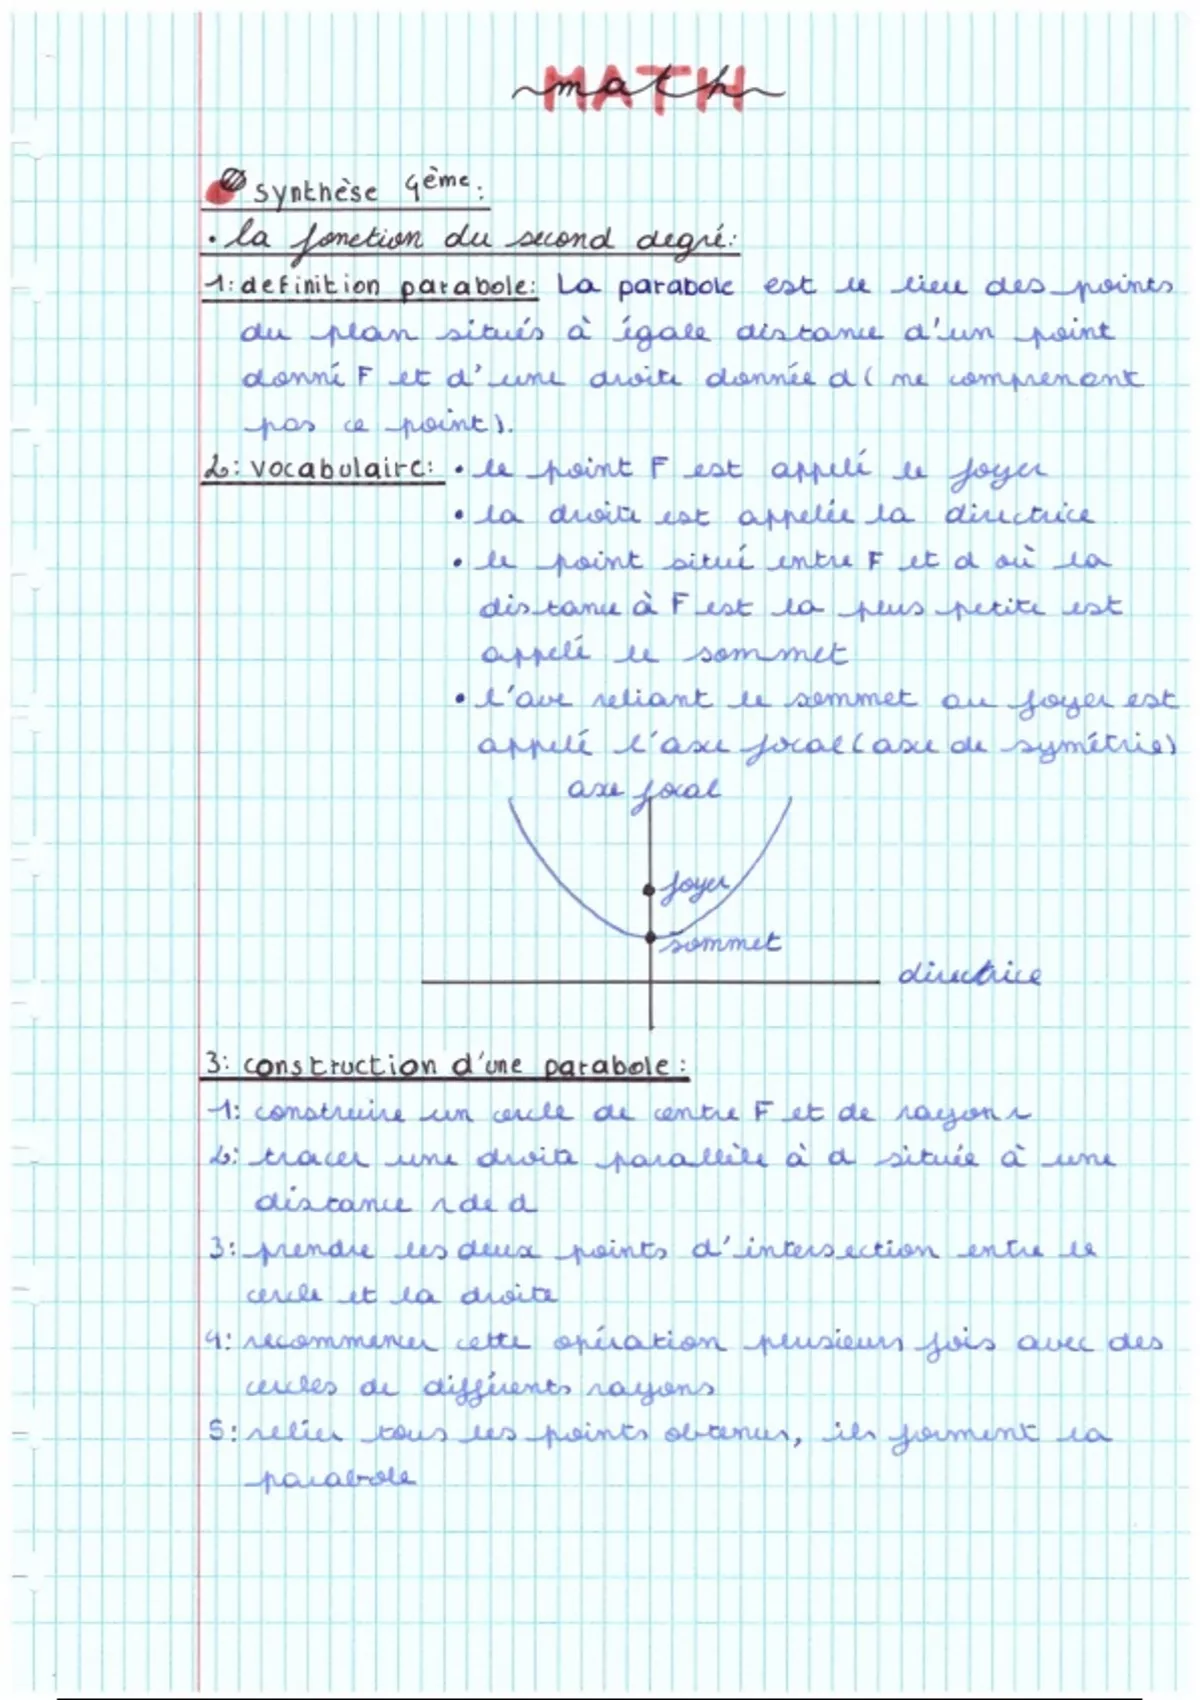 MATH
math
synthèse 4ème:
• la fonction du second degré:
1: definition parabole: La parabole est le lieu des points
du plan situés à égale distance d'un point
donné F et d'une droite donnée d ( ne comprenant
pas ce point).
2: vocabulaire: • le point F est appelé le foyer
• la droite est appelée la directrice
• le point situé entre F et d où la
distance à F est la plus petite est
appelé le sommet
• l'axe reliant le sommet au foyer est
appelé l'axe focal (axe de symétrie)
axe focal
foyer
sommet
directrice
3: construction d'une parabole:
1: construire un cercle de centre F et de rayon r
2: tracer une droite parallèle à d située à une
distance r de d
3: prendre les deux points d'intersection entre le
cercle et la droite
4: recommencer cette opération plusieurs fois avec des
cercles de différents rayons
5: relier tous les points obtenus, ils forment la
parabole